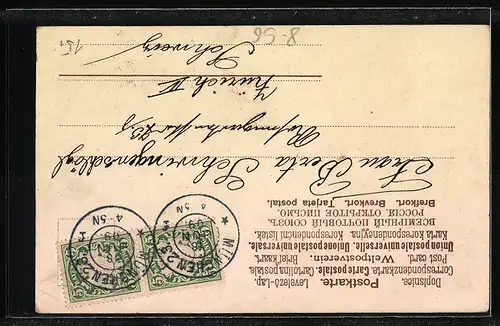 Dopisnice. Postkarte. Levelező-Lap.
Correspondenzkarte. Carte postale. Cartolina postale.
Post card. Weltpostverein. Briefkaart.
Union postale universelle. Unione postale universale.
Karta Korespondencyjna. Korespondenční lístek.
ВСЕМІРНЫЙ ПОЧТОВЫЙ СОЮЗЪ.
РОССІЯ. ОТКРЫТОЕ ПИСЬМО.
Bretkort. Brevkort. Tarjeta postal.
MÜNCHEN.2
4-5N
5
5
Frau Berta
Zürich V
Schweiz
8-56